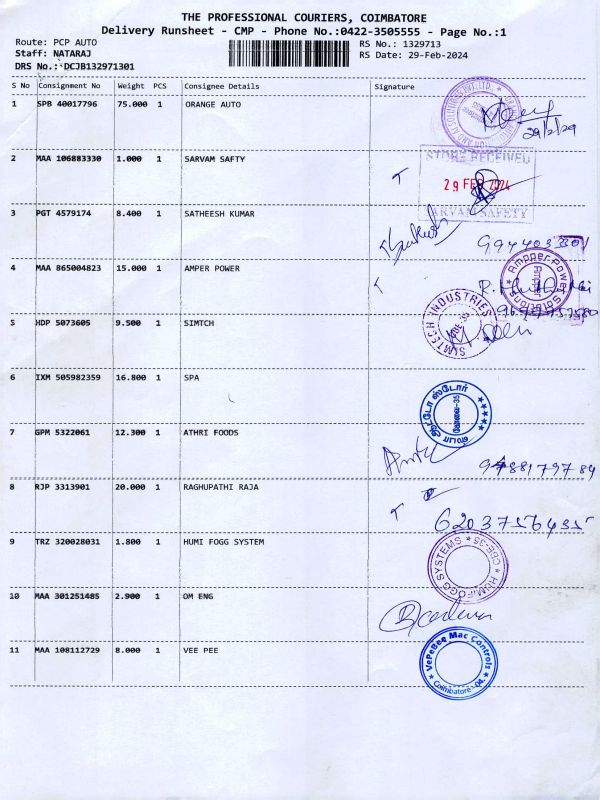 THE PROFESSIONAL COURIERS, COIMBATORE
Delivery Runsheet - CMP - Phone No.:0422-3505555 - Page No.:1
Route: PCP AUTO
RS No.: 1329713
Staff: NATARAJ
RS Date: 29-Feb-2024
DRS No.: DCJB132971301
S No Consignment No Weight PCS Consignee Details Signature
1 SPB 40017796 75.000 1 ORANGE AUTO
29/2/24
STORE RECEIVED
2 MAA 106883330 1.000 1 SARVAM SAFTY
29 FEB 2024
ARVAM SAFETY
3 PGT 4579174 8.400 1 SATHEESH KUMAR
4 MAA 865004823 15.000 1 AMPER POWER
Ampper Power Solutions
5 HDP 5073605 9.500 1 SIMTCH
SIMTECH INDUSTRIES
6 IXM 505982359 16.800 1 SPA
ஸ்பா ஆட்டோ ஸ்டோர்
கோவை-35
7 GPM 5322061 12.300 1 ATHRI FOODS
8 RJP 3313901 20.000 1 RAGHUPATHI RAJA
6203756435
9 TRZ 320028031 1.800 1 HUMI FOGG SYSTEM
HUMIFOGG SYSTEMS CBE-35
10 MAA 301251485 2.900 1 OM ENG
11 MAA 108112729 8.000 1 VEE PEE
VePeBee Mac Controls
Coimbatore - 04.